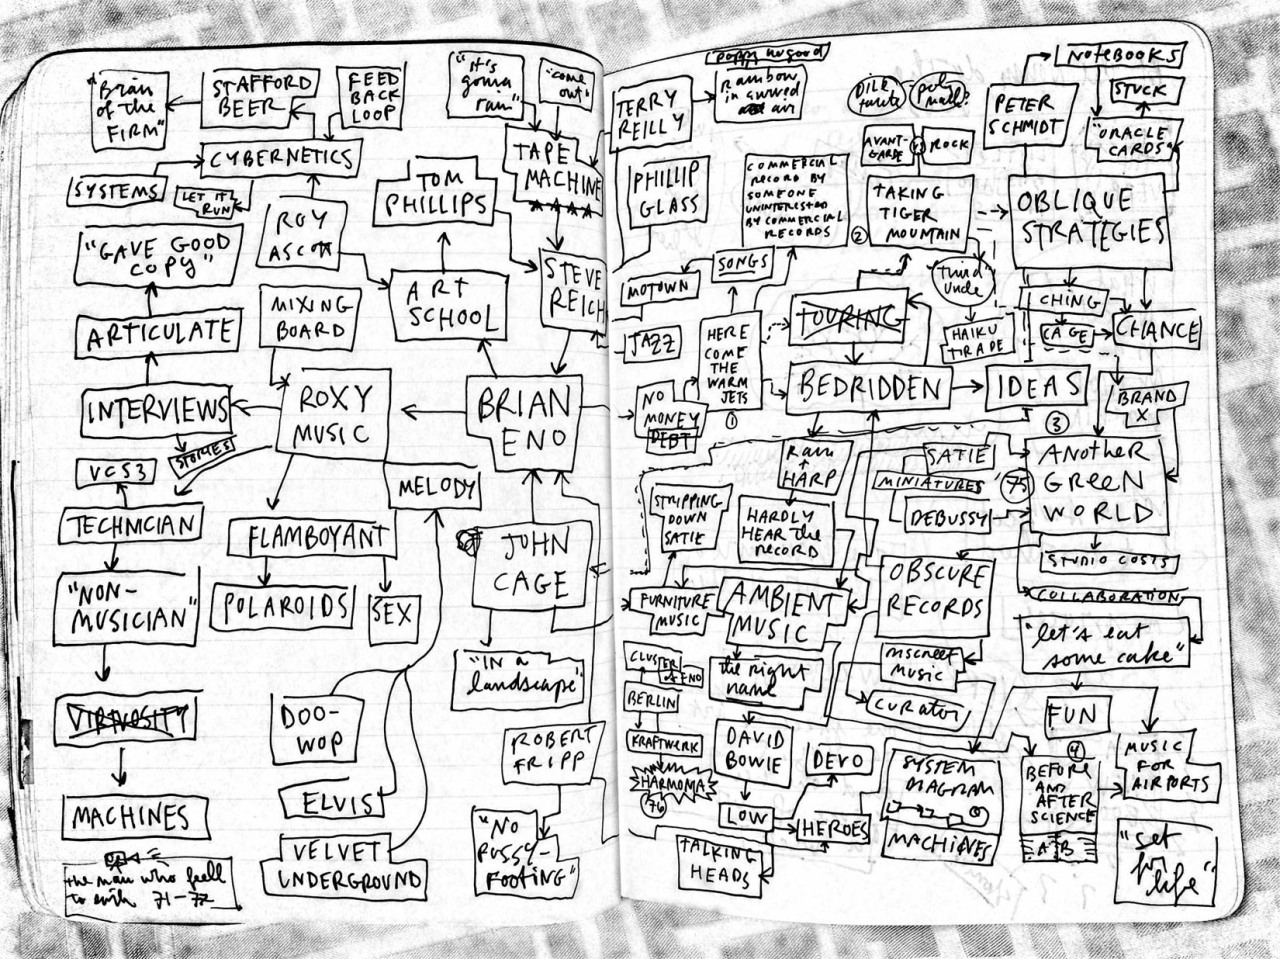 "Brain
of the
FIRM"
STAFFORD
BEER
FEED
BACK
LOOP
"it's
gonna
rain"
"come
out"
CYBERNETICS
SYSTEMS
LET IT
RUN
TAPE
MACHINE
TOM
PHILLIPS
ROY
ASCOTT
"GAVE GOOD
COPY"
STEVE
REICH
ART
SCHOOL
MIXING
BOARD
ARTICULATE
INTERVIEWS
STORIES
ROXY
MUSIC
BRIAN
ENO
VCS3
MELODY
TECHNICIAN
FLAMBOYANT
JOHN
CAGE
"NON-
MUSICIAN"
POLAROIDS
SEX
"IN A
landscape"
VIRTUOSITY
DOO-
WOP
ROBERT
FRIPP
MACHINES
ELVIS
"NO
PUSSY-
FOOTING"
VELVET
UNDERGROUND
the man who fell
to earth 71-72
poppy nogood
rainbow
in curved
air
TERRY
REILLY
DILE
tante
poly
math?
NOTEBOOKS
PETER
SCHMIDT
STUCK
"ORACLE
CARDS"
AVANT-
GARDE
ROCK
PHILLIP
GLASS
COMMERCIAL
RECORD BY
SOMEONE
UNINTERESTED
BY COMMERCIAL
RECORDS
TAKING
TIGER
MOUNTAIN
2
OBLIQUE
STRATEGIES
SONGS
MOTOWN
"third"
uncle
TOURING
I CHING
CAGE
CHANCE
JAZZ
HERE
COME
THE
WARM
JETS
1
HAIKU
TIRADE
BEDRIDDEN
IDEAS
BRAND
X
NO
MONEY
DEBT
3
Rain
+
HARP
SATIE
MINIATURES
DEBUSSY
75
ANOTHER
GREEN
WORLD
STRIPPING
DOWN
SATIE
HARDLY
HEAR the
RECORD
STUDIO COSTS
OBSCURE
RECORDS
COLLABORATION
FURNITURE
MUSIC
AMBIENT
MUSIC
"let's eat
some cake"
CLUSTER
+ ENO
the right
name
discreet
music
curator
BERLIN
FUN
KRAFTWERK
DAVID
BOWIE
DEVO
SYSTEM
DIAGRAM
MACHINES
4
BEFORE
AND
AFTER
SCIENCE
A B
MUSIC
FOR
AIRPORTS
HARMONIA
76
LOW
HEROES
TALKING
HEADS
"set
for
life"